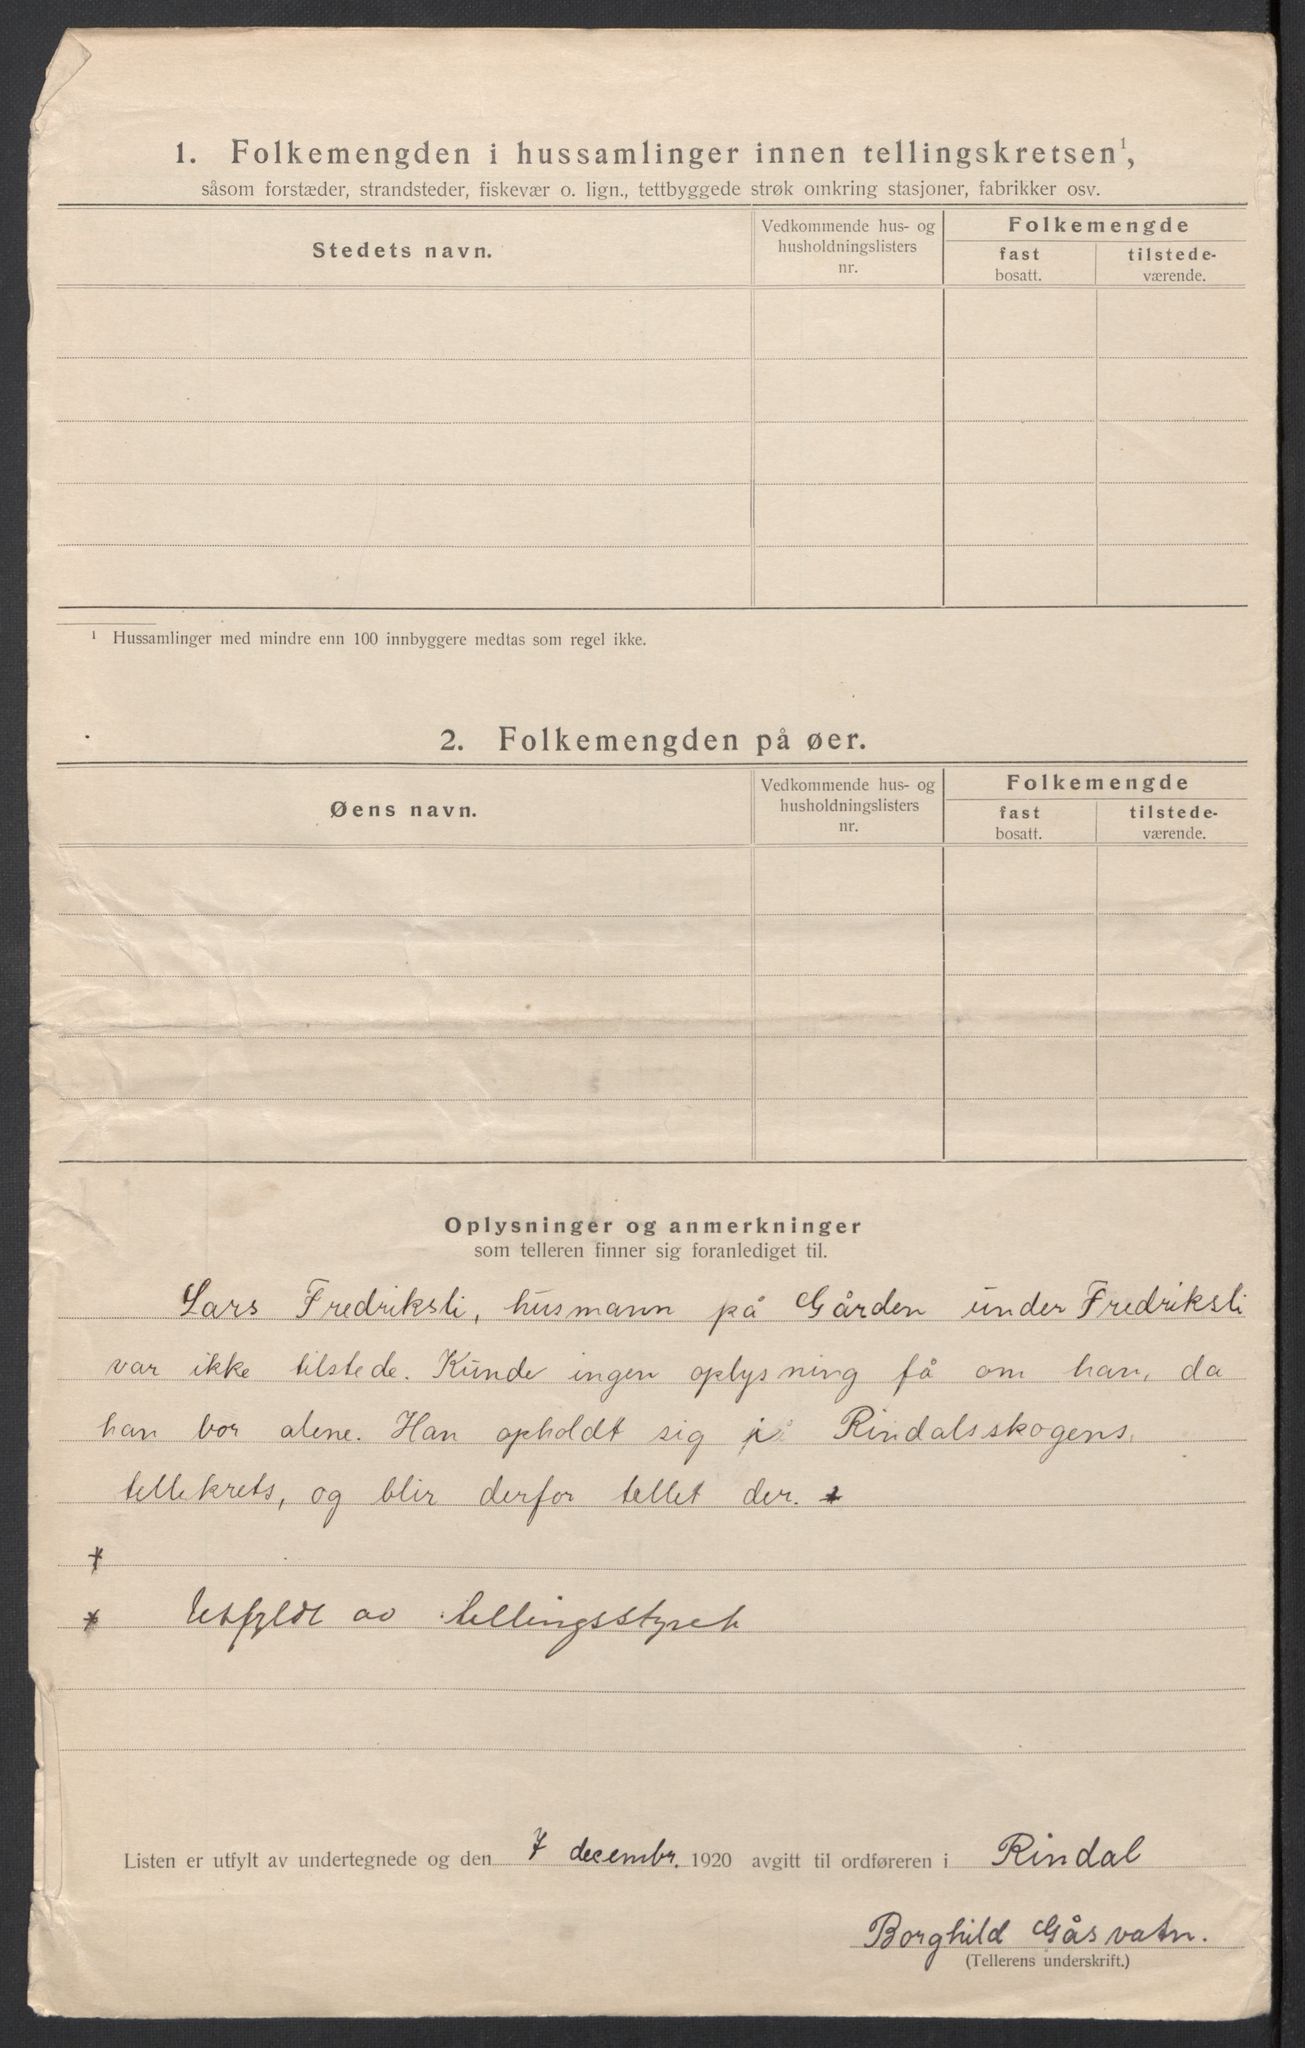 1. Folkemengden i hussamlinger innen tellingskretsen¹,
såsom forstæder, strandsteder, fiskevær o. lign., tettbyggede strøk omkring stasjoner, fabrikker osv.
Stedets navn.
Vedkommende hus- og
husholdningslisters
nr.
Folkemengde
fast
bosatt.
tilstede-
værende.
¹ Hussamlinger med mindre enn 100 innbyggere medtas som regel ikke.
2. Folkemengden på øer.
Øens navn.
Vedkommende hus- og
husholdningslisters
nr.
Folkemengde
fast
bosatt.
tilstede-
værende.
Oplysninger og anmerkninger
som telleren finner sig foranlediget til.
Lars Fredriksli, husmann på Gården under Fredriksli
var ikke tilstede. Kunde ingen oplysning få om han, da
han bor alene. Han opholdt sig i Rindalsskogens
tellekrets, og blir derfor tellet der. *
*
* Utfyldt av tellingsstyret
Listen er utfylt av undertegnede og den 7 decembr. 1920 avgitt til ordføreren i Rindal
Borghild Gåsvatn.
(Tellerens underskrift.)